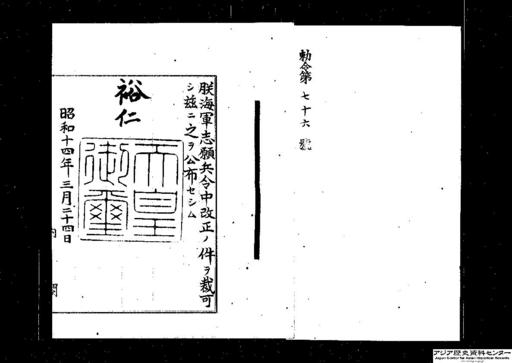 勅令第七十六號
朕海軍志願兵令中改正ノ件ヲ裁可
シ茲ニ之ヲ公布セシム
裕仁
天皇
御璽
昭和十四年三月二十四日
内閣
アジア歴史資料センター
Japan Center for Asian Historical Records